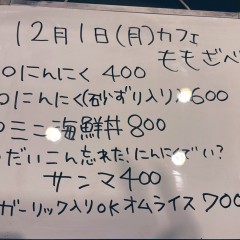 12月1日(月)カフェ
ももざべ
にんにく 400
にんにく(砂ずり入り)600
ミニ海鮮丼800
だいこん忘れた!にんにくでいい?
サンマ400
ガーリック入りOKオムライス700